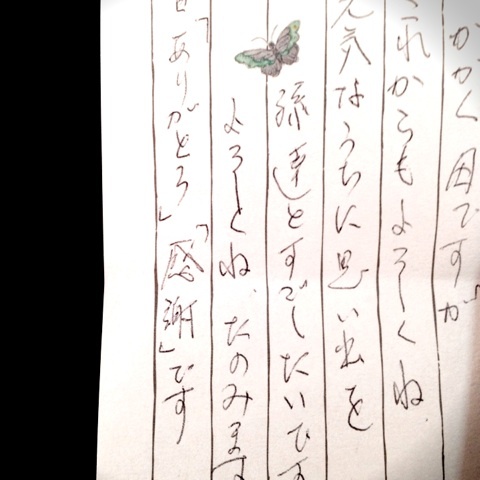 ですが
これからもよろしくね
元気なうちに思い出を
孫達とすごしたいです
よろしくね、たのみます
「ありがとう」「感謝」です